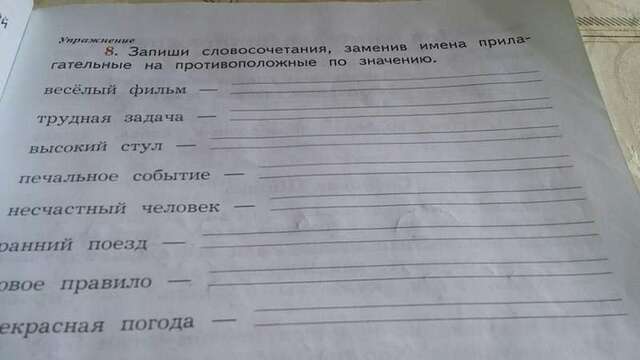 Упражнение
8. Запиши словосочетания, заменив имена прила-
гательные на противоположные по значению.
весёлый фильм —
трудная задача —
высокий стул —
печальное событие —
несчастный человек —
ранний поезд —
овое правило —
екрасная погода —